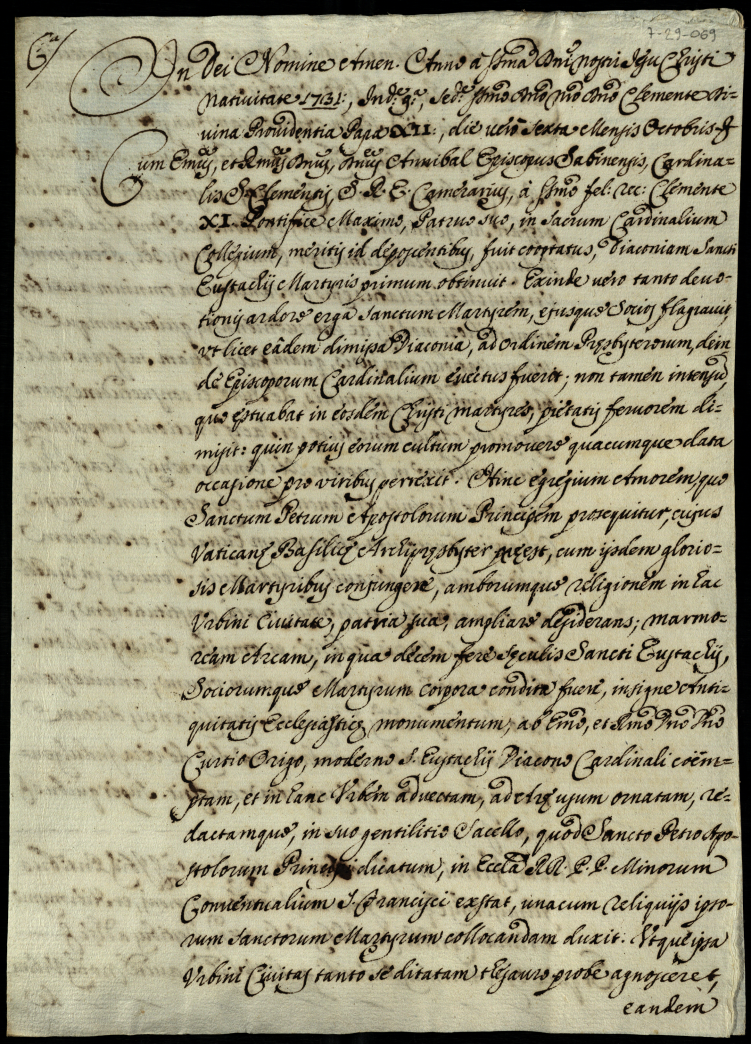 7-29-069
In Dei Nomine Amen. Anno à SSma Dni nostri Jesu Christi
Nativitate 1731:, Inde ga, Sede SSmo Dno Nro Dno Clemente Di-
vina Providentia Papa XII:, die verò sexta Mensis Octobris
Cum Emus, et Rmus Dnus, Dnus Annibal Episcopus Sabinensis, Cardina-
lis S. Clementis, S. R. E. Camerarius, à SSmo fel: rec: Clemente
XI. Pontifice Maximo, Patruo suo, in Sacrum Cardinalium
Collegium, meritis id deposcentibus, fuit cooptatus, Diaconiam Sancti
Eustachij Martyris primum obtinuit. Exinde vero tanto devo-
tionis ardore erga Sanctum Martyrem, ejusque Socios flagravit,
ut licet eâdem dimissa Diaconia, ad ordinem Presbyterorum, dein
de Episcoporum Cardinalium evectus fuerit; non tamen intensũ,
quo estuabat in eosdem Christi martyres, pietatis fervorem di-
misit: quin potius eorum cultum promovere quacumque data
occasione pro viribus perrexit. Hinc egregium Amorem, quo
Sanctum Petrum Apostolorum Principem prosequitur, cujus
Vaticanę Basilicę Archipręsbyter pręest, cum ijsdem glorio-
sis Martyribus conjungere, amborumque religionem in hac
Urbini Civitate, patria sua, ampliare desiderans; marmo-
ream Arcam, in qua decem fere sęculis Sancti Eustachij,
Sociorumque Martyrum corpora condita fuere, insigne Anti-
quitatis Ecclesiasticę monumentum, ab Emo, et Rmo Dno Dno
Curtio Origo, moderno S. Eustachij Diacono Cardinali coëm-
ptam, et in hanc Urbem advectam, ad Arę usum ornatam, re-
dactamque, in suo gentilitio Sacello, quod Sancto Petro Apo-
stolorum Principi dicatum, in Eccla RR. P.P. Minorum
Conventualium S. Francisci exstat, unacum reliquijs ipso-
rum Sanctorum Martyrum collocandam duxit. Utque ipsa
Urbini Civitas tanto se ditatam thesauro probe agnosceret,
eandem